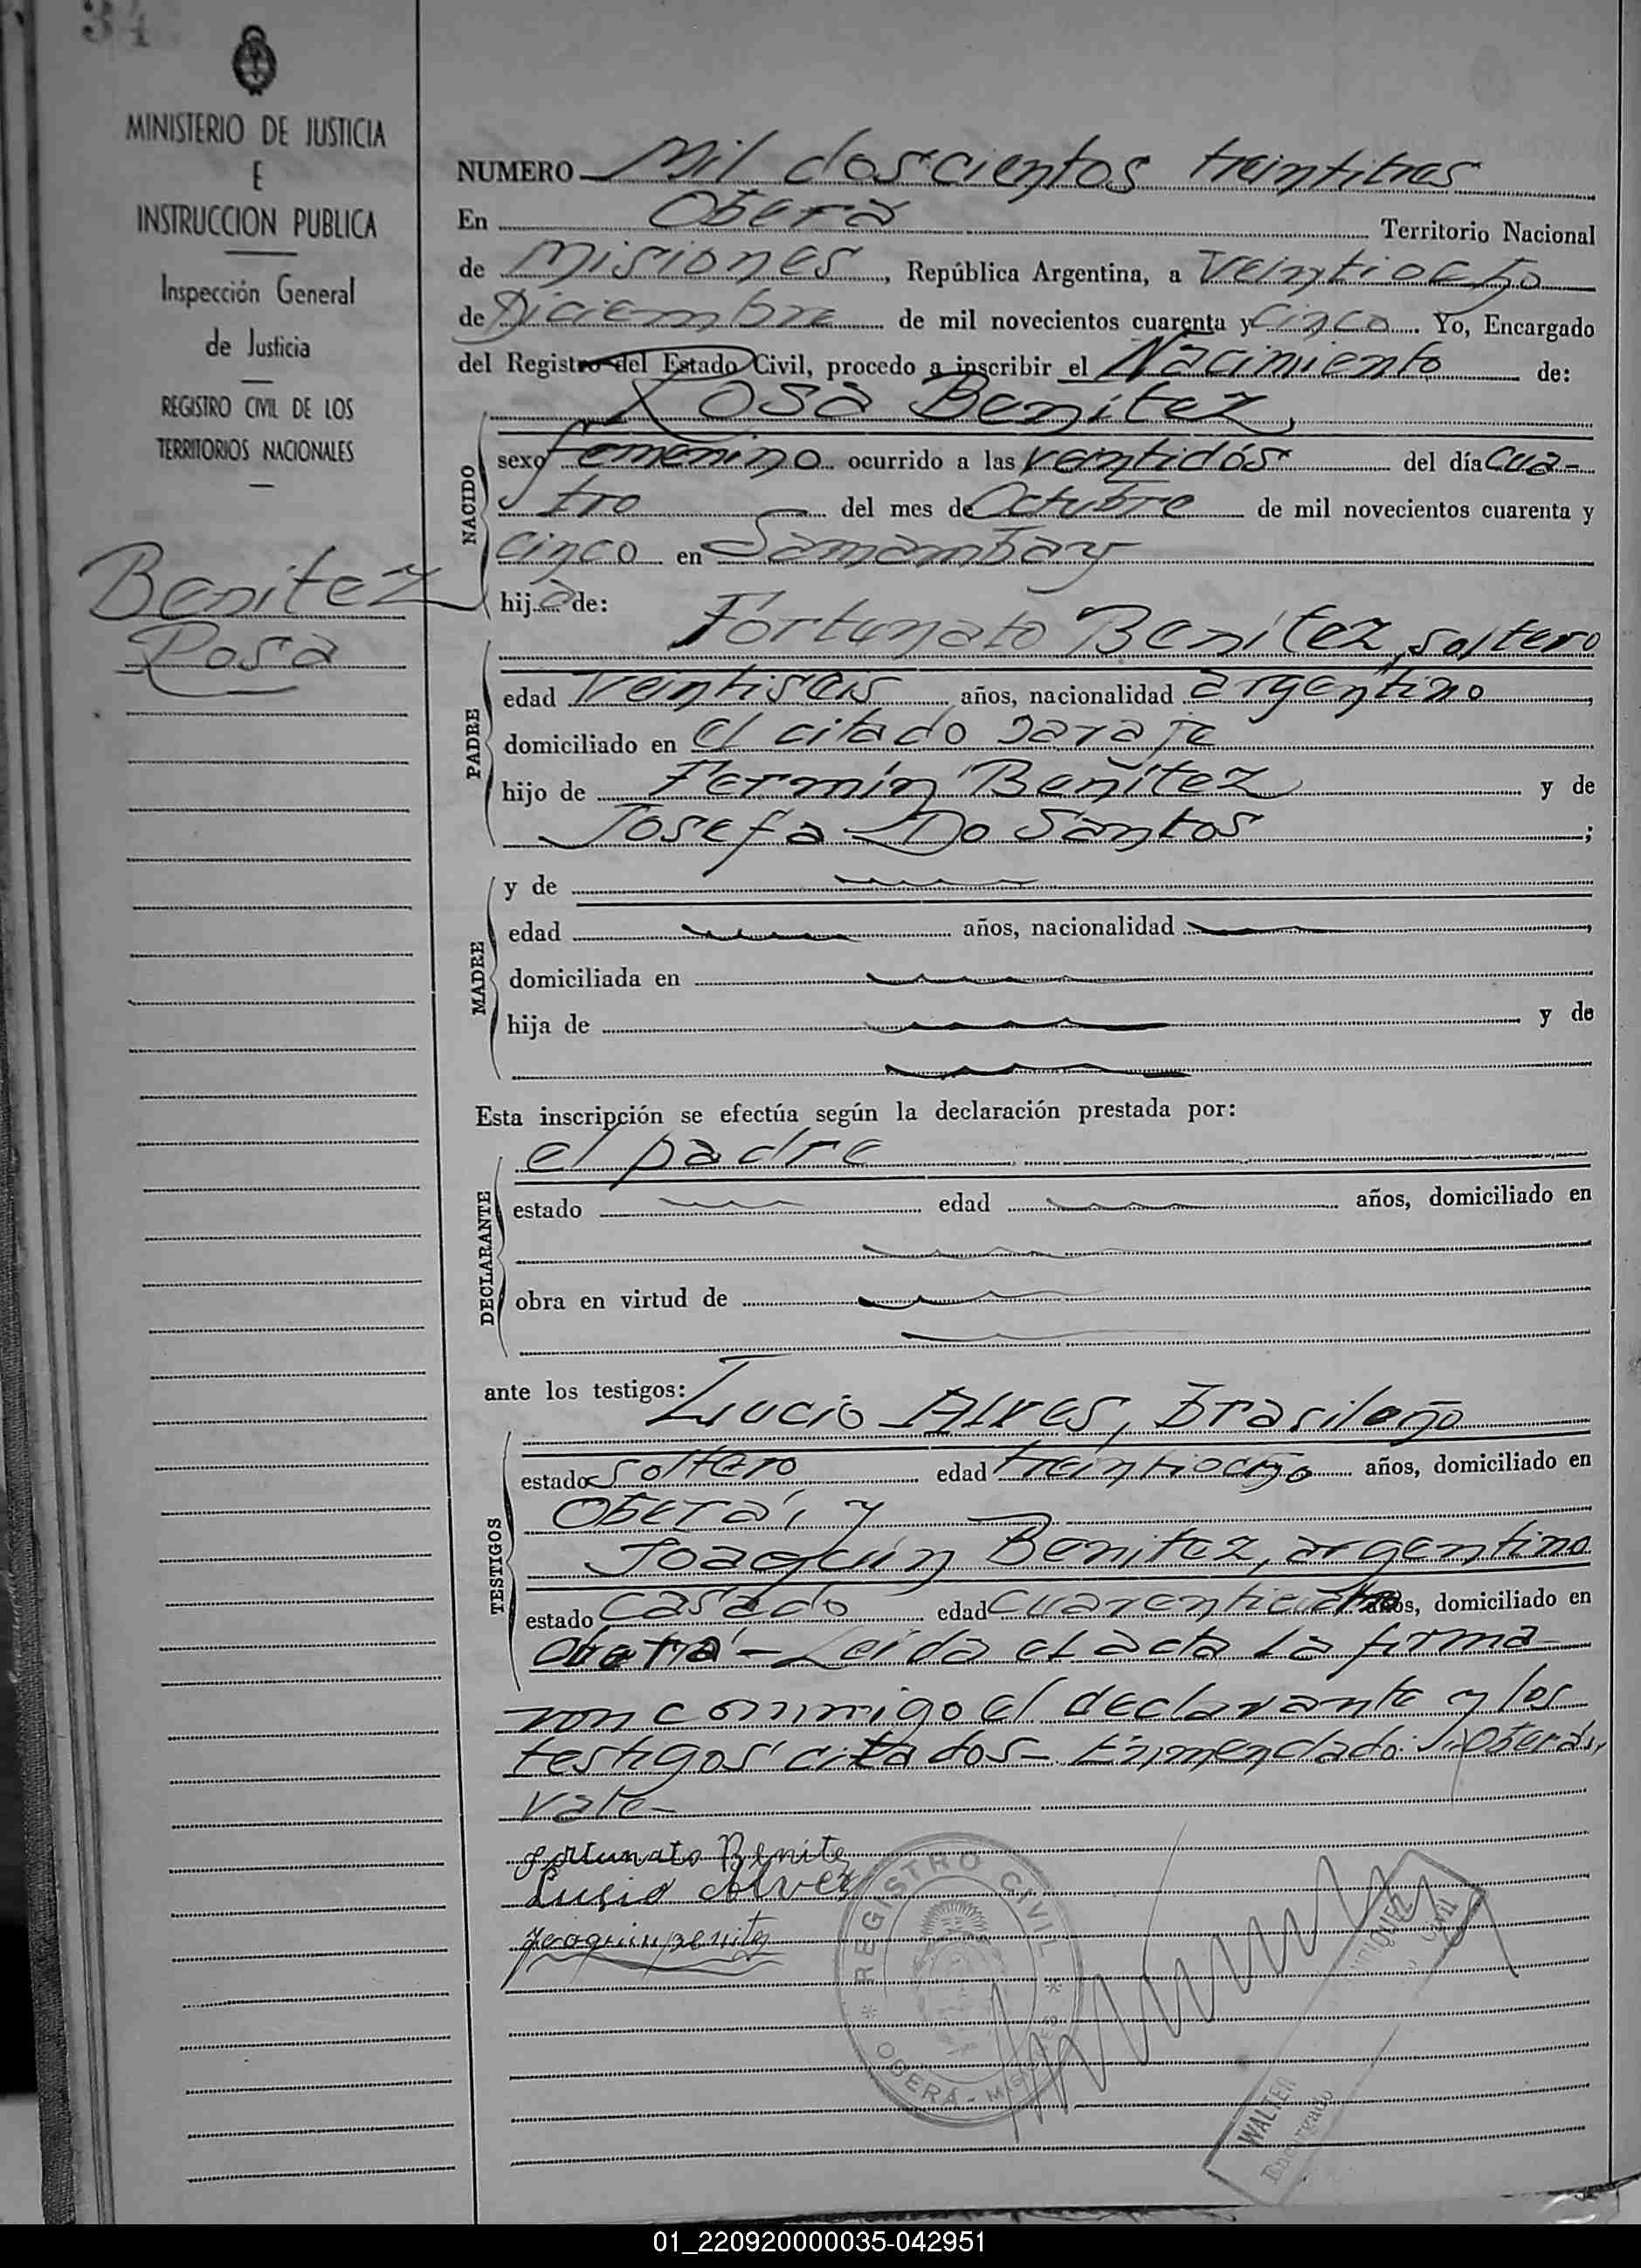 34
MINISTERIO DE JUSTICIA
E
INSTRUCCION PUBLICA
Inspección General
de Justicia
REGISTRO CIVIL DE LOS
TERRITORIOS NACIONALES
Benitez
Rosa
NUMERO Mil doscientos treintitres
En Oberá Territorio Nacional
de Misiones, República Argentina, a veintiocho
de Diciembre de mil novecientos cuarenta y cinco. Yo, Encargado
del Registro del Estado Civil, procedo a inscribir el Nacimiento de:
Rosa Benitez,
NACIDO
sexo femenino ocurrido a las veintidós del día cua-
tro del mes de Octubre de mil novecientos cuarenta y
cinco en Samambay
hija de:
Fortunato Benítez, soltero
PADRE
edad veintiseis años, nacionalidad argentino,
domiciliado en el citado paraje
hijo de Fermín Benítez y de
Josefa Do Santos;
MADRE
y de
edad años, nacionalidad,
domiciliada en
hija de y de
Esta inscripción se efectúa según la declaración prestada por:
el padre
DECLARANTE
estado edad años, domiciliado en
obra en virtud de
ante los testigos:
Lucio Alves, Brasileño
TESTIGOS
estado soltero edad treintiocho años, domiciliado en
Oberá, y
Joaquín Benitez, argentino
estado casado edad años, domiciliado en
Oberá - Leida el acta la firma-
ron conmigo el declarante y los
testigos citados - Enmendado: Oberá,
Vale -
fortunato Benite
Lusio Alvez
Joaquin benitez
REGISTRO CIVIL
OBERÁ - MISIONES
WALTER
Encargado
CIVIL
01_220920000035-042951